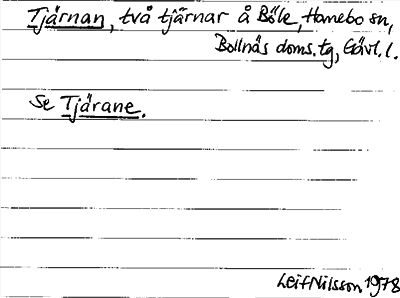 Tjärnan, två tjärnar å Böle, Hanebo sn,
Bollnäs doms.tg, Gävl. l.
Se Tjärane.
Leif Nilsson 1978